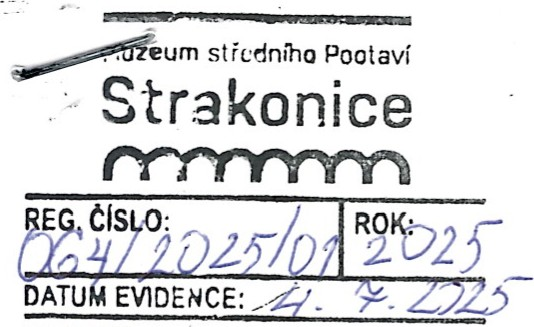 Muzeum středního Pootaví
Strakonice
REG. ČÍSLO: ROK:
064/2025/01 2025
DATUM EVIDENCE: 4. 7. 2025